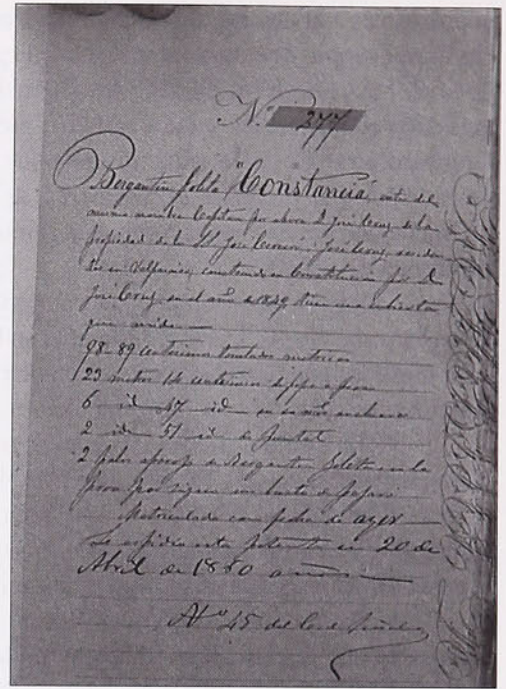 Nº 277
Bergantin Goleta "Constancia", ante del
mismo nombre Capitan por ahora D. José Cruz, de la
propiedad de los SS. José Cerveró i José Cruz,
en Valparaiso, construido en Constitucion por D.
José Cruz en el año de 1849, tiene una cubierta
que mide
98-89 centesimos toneladas metricas
23 metros 14 centesimos de popa a proa
6 id 47 id en su mayor anchura
2 id 51 id de puntal
2 palos aparejo de Bergantin Goleta en la
proa por signo un busto de pajaro
Matriculada con fecha de ayer
Se espidio esta patente en 20 de
Abril de 1880 años
Nº 45 del